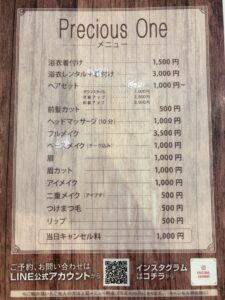 Precious One
メニュー
浴衣着付け 1,500円
浴衣レンタル+着付け 3,000円
ヘアセット 1,000円~
前髪カット 500円
ヘッドマッサージ(10分) 1,000円
フルメイク 3,500円
ベースメイク(チーク込み) 1,000円
眉 1,000円
眉カット 1,000円
アイメイク 1,000円
二重メイク(アイプチ) 500円
つけまつ毛 500円
リップ 500円
当日キャンセル料 1,000円
ご予約、お問い合わせは
LINE公式アカウントから
インスタグラム
はコチラ